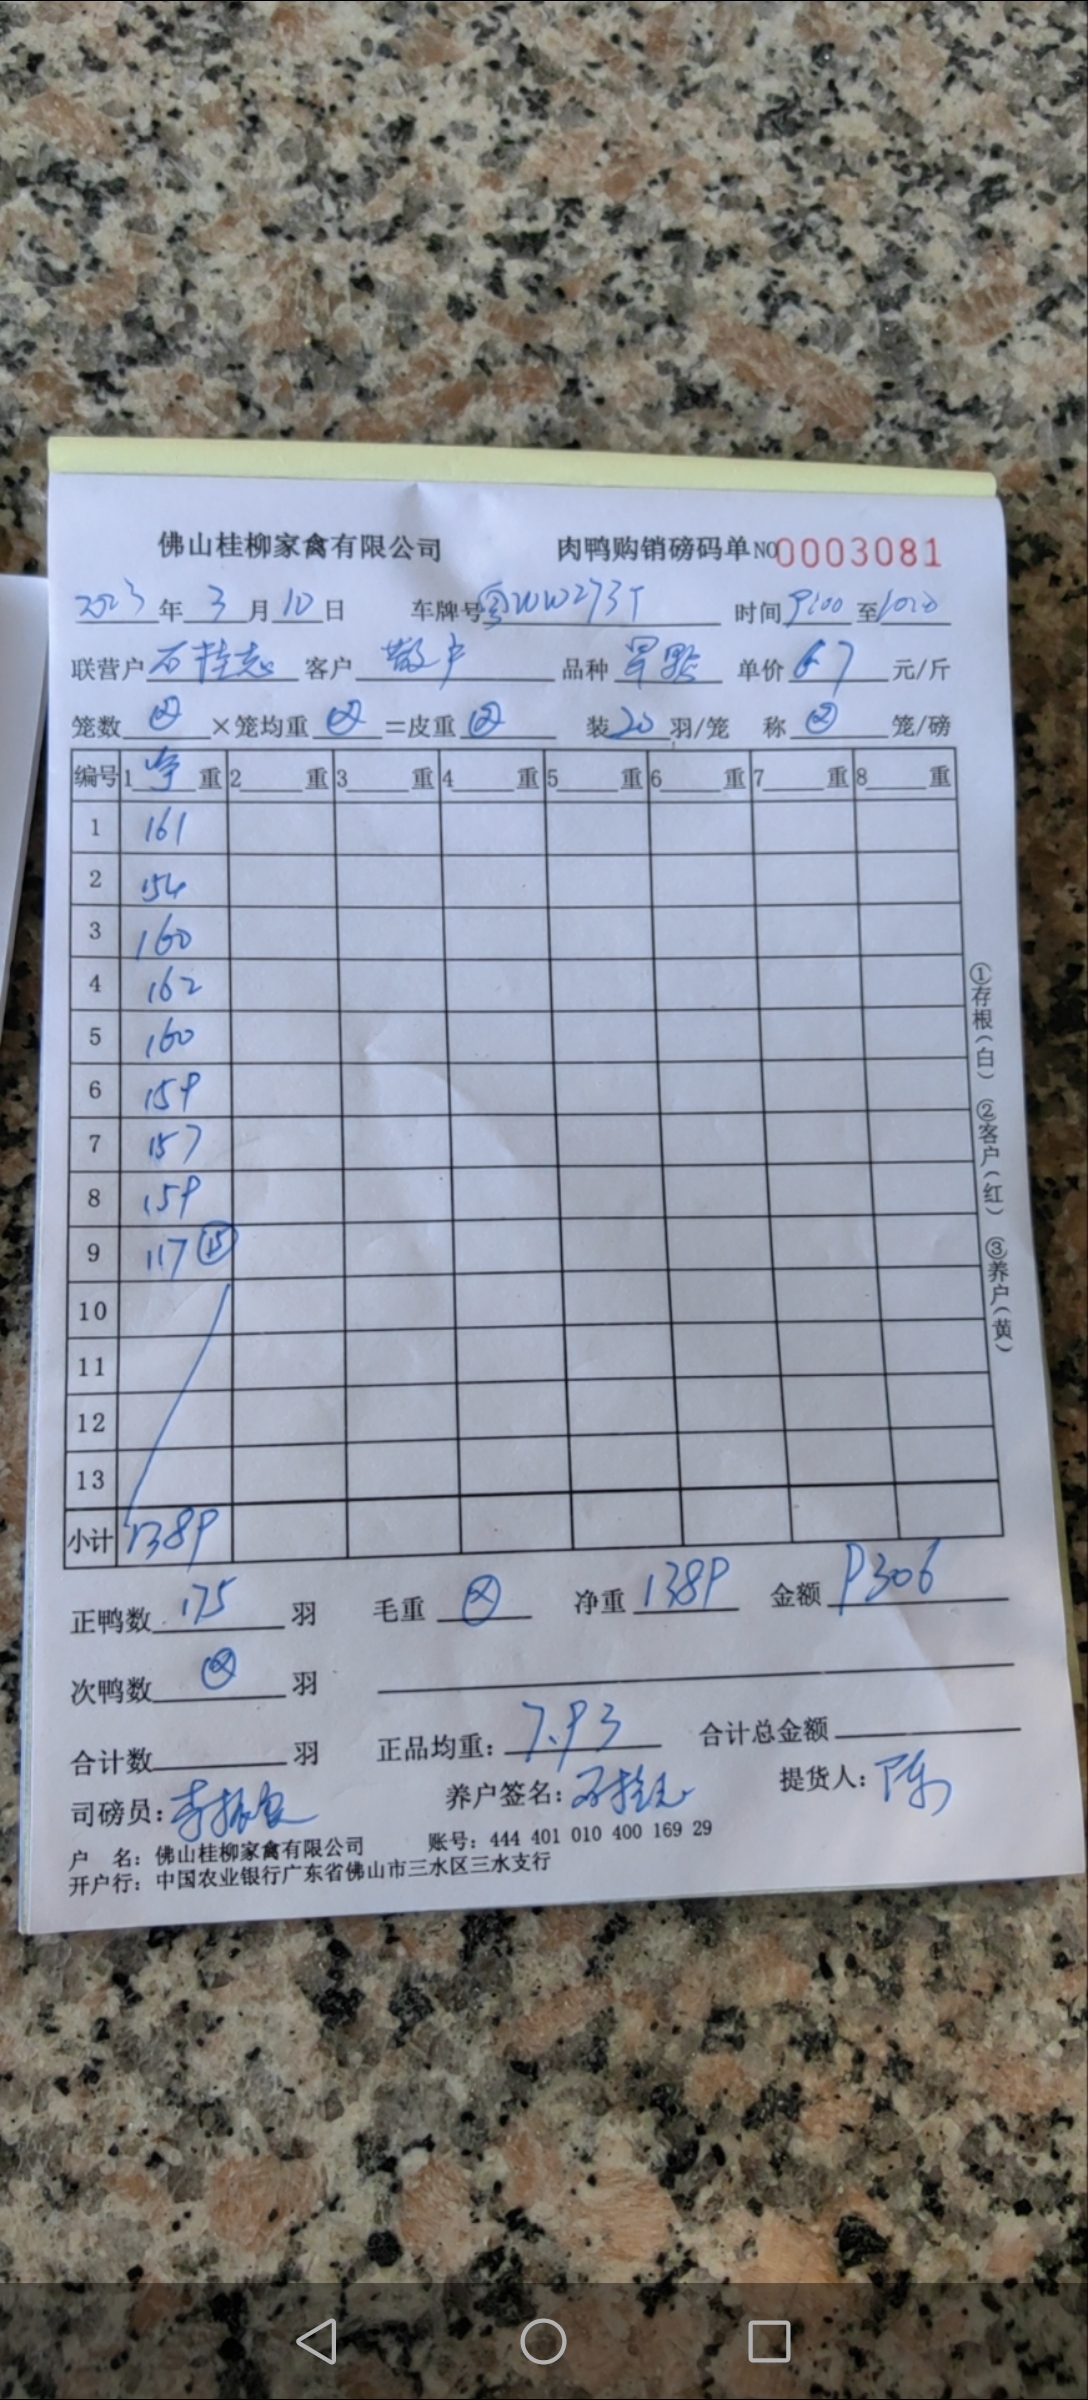 佛山桂柳家禽有限公司 肉鸭购销磅码单 NO 0003081
2023年3月10日 车牌号粤WW273T 时间9:00至10:20
联营户石桂志 客户 散户 品种 单价6.7元/斤
笼数 ×笼均重 =皮重 装20羽/笼 称 笼/磅
编号 1净重 2 重 3 重 4 重 5 重 6 重 7 重 8 重
1 161
2 154
3 160
4 162
5 160
6 159
7 157
8 159
9 117 ⑮
10
11
12
13
小计 1389
正鸭数 175 羽 毛重 净重 1389 金额 9306
次鸭数 羽
合计数 羽 正品均重：7.93 合计总金额
司磅员：李振 养户签名：石桂志 提货人：陈
户 名：佛山桂柳家禽有限公司 账号：444 401 010 400 169 29
开户行：中国农业银行广东省佛山市三水区三水支行
①存根（白） ②客户（红） ③养户（黄）